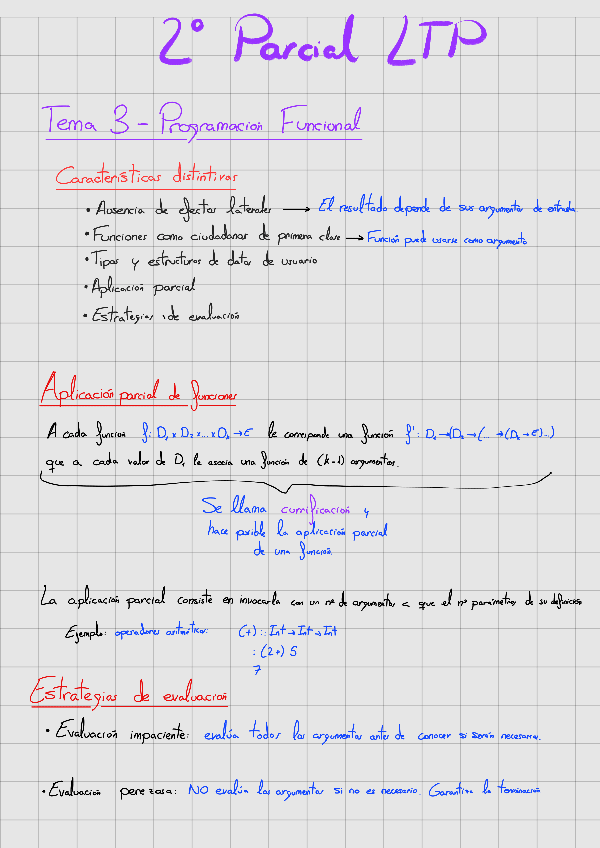 2º Parcial LTP
Tema 3 - Programación Funcional
Características distintivas
• Ausencia de efectos laterales → El resultado depende de sus argumentos de entrada
• Funciones como ciudadanas de primera clase → Función puede usarse como argumento
• Tipos y estructuras de datos de usuario
• Aplicación parcial
• Estrategias de evaluación
Aplicación parcial de funciones
A cada función f: D₁ x D₂ x ... x Dₖ → E le corresponde una función f': D₁ → (D₂ → (... → (Dₖ → E)...)
que a cada valor de D₁ le asocia una función de (k-1) argumentos.
Se llama currificación y
hace posible la aplicación parcial
de una función.
La aplicación parcial consiste en invocarla con un nº de argumentos < que el nº parámetros de su definición
Ejemplo: operadores aritméticos: (+) :: Int → Int → Int
: (2+) 5
7
Estrategias de evaluación
• Evaluación impaciente: evalúa todos los argumentos antes de conocer si serán necesarios.
• Evaluación perezosa: NO evalúa los argumentos si no es necesario. Garantiza la terminación